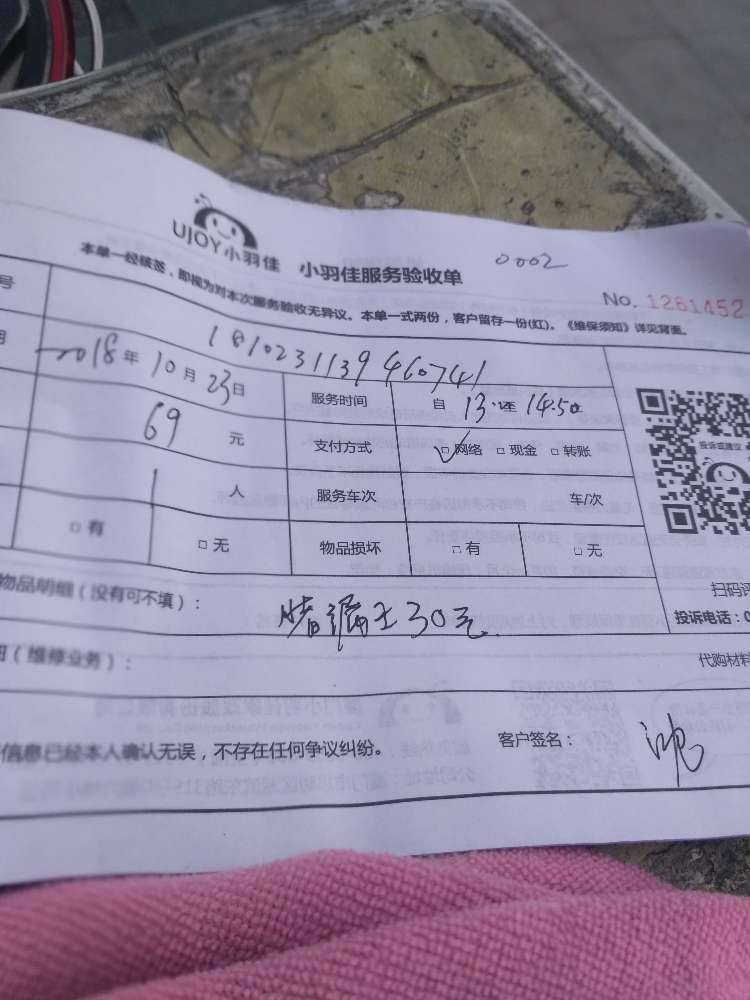 0002
UJOY小羽佳 小羽佳服务验收单
No. 1261452
本单一经核签,即视为对本次服务验收无异议。本单一式两份,客户留存一份(红)。《维保须知》详见背面。
号 1810231139460741
2018年10月23日 服务时间 自 13: 至 14:50
投诉或建议
69 元 支付方式 ☑网络 □现金 □转账
1 人 服务车次 车/次
□有 □无 物品损坏 □有 □无
物品明细(没有可不填):
扫码评
30元
投诉电话:0
(维修业务):
代购材料
信息已经本人确认无误,不存在任何争议纠纷。 客户签名: